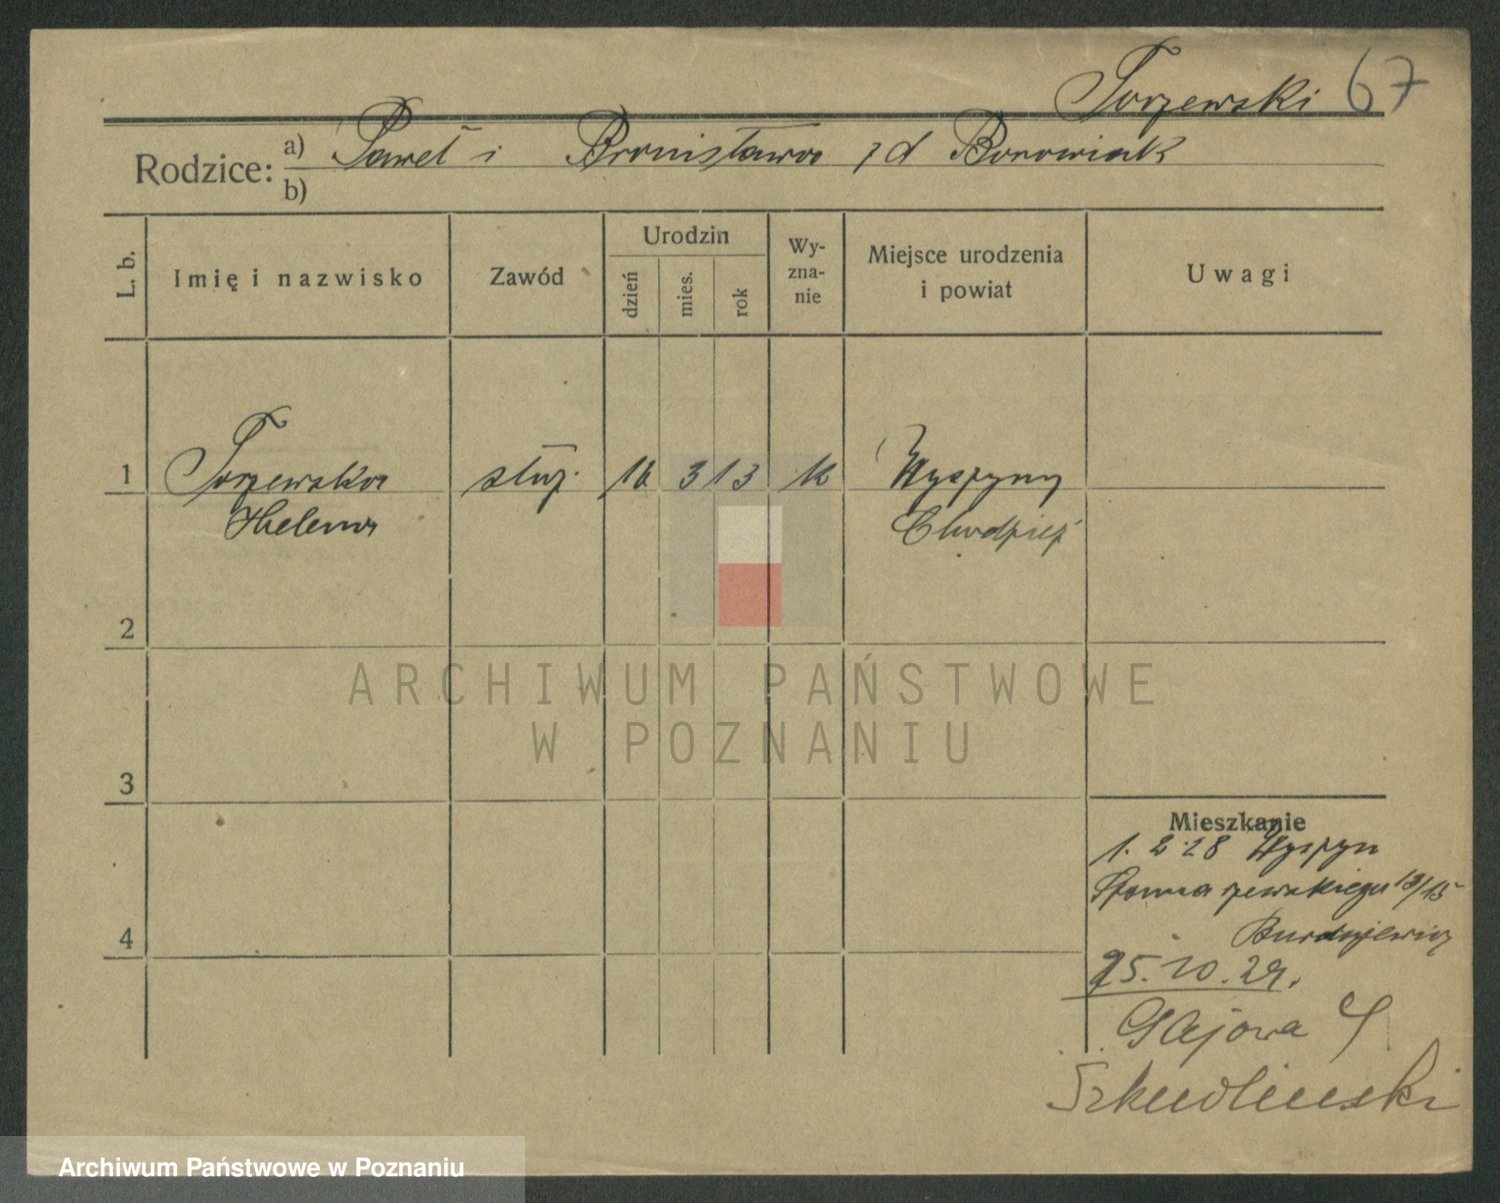 Torzewski 67
Rodzice: a) Paweł i Bronisława z d Borowiak
b)
L. b.
Imię i nazwisko
Zawód
Urodzin
dzień
mies.
rok
Wy-
zna-
nie
Miejsce urodzenia
i powiat
Uwagi
1 Torzewska służ. 16 3 13 k Wyszyny
Helena Chodzież
2
3
4
Mieszkanie
1. 2 28 Wyszyn
13/15
25.10.29.
Gajowa 4
Szkudlinski
ARCHIWUM PAŃSTWOWE
W POZNANIU
Archiwum Państwowe w Poznaniu